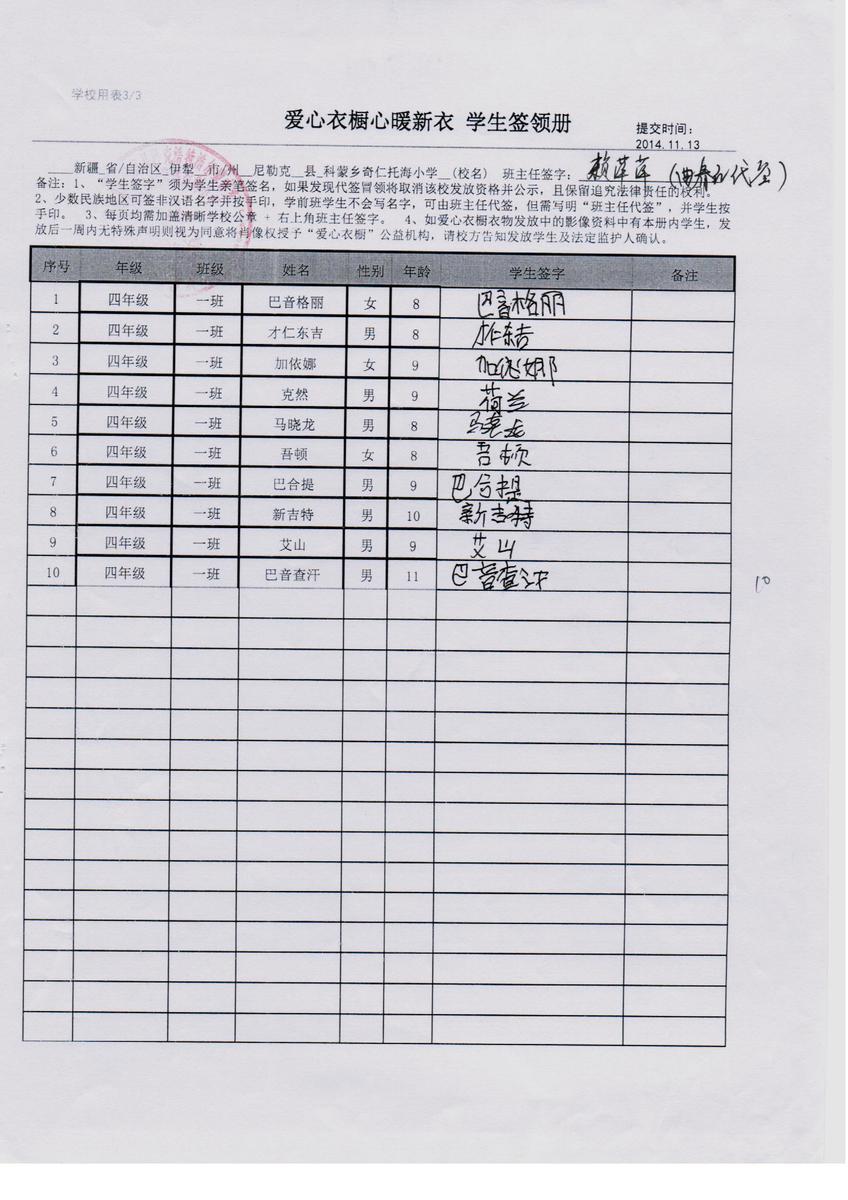 学校用表3/3
爱心衣橱心暖新衣 学生签领册
提交时间：
2014.11.13
____新疆_省/自治区_伊犁__市/州__尼勒克__县_科蒙乡奇仁托海小学__(校名) 班主任签字：
备注：1、“学生签字”须为学生亲笔签名，如果发现代签冒领将取消该校发放资格并公示，且保留追究法律责任的权利。
2、少数民族地区可签非汉语名字并按手印，学前班学生不会写名字，可由班主任代签，但需写明“班主任代签”，并学生按
手印。 3、每页均需加盖清晰学校公章 + 右上角班主任签字。 4、如爱心衣橱衣物发放中的影像资料中有本册内学生，发
放后一周内无特殊声明则视为同意将肖像权授予“爱心衣橱”公益机构，请校方告知发放学生及法定监护人确认。
序号 年级 班级 姓名 性别 年龄 学生签字 备注
1 四年级 一班 巴音格丽 女 8 巴音格丽
2 四年级 一班 才仁东吉 男 8 才仁东吉
3 四年级 一班 加依娜 女 9 加依娜
4 四年级 一班 克然 男 9 荷兰
5 四年级 一班 马晓龙 男 8 马龙
6 四年级 一班 吾顿 女 8 吾顿
7 四年级 一班 巴合提 男 9 巴合提
8 四年级 一班 新吉特 男 10 新吉特
9 四年级 一班 艾山 男 9 艾山
10 四年级 一班 巴音查汗 男 11 巴音查汗
10